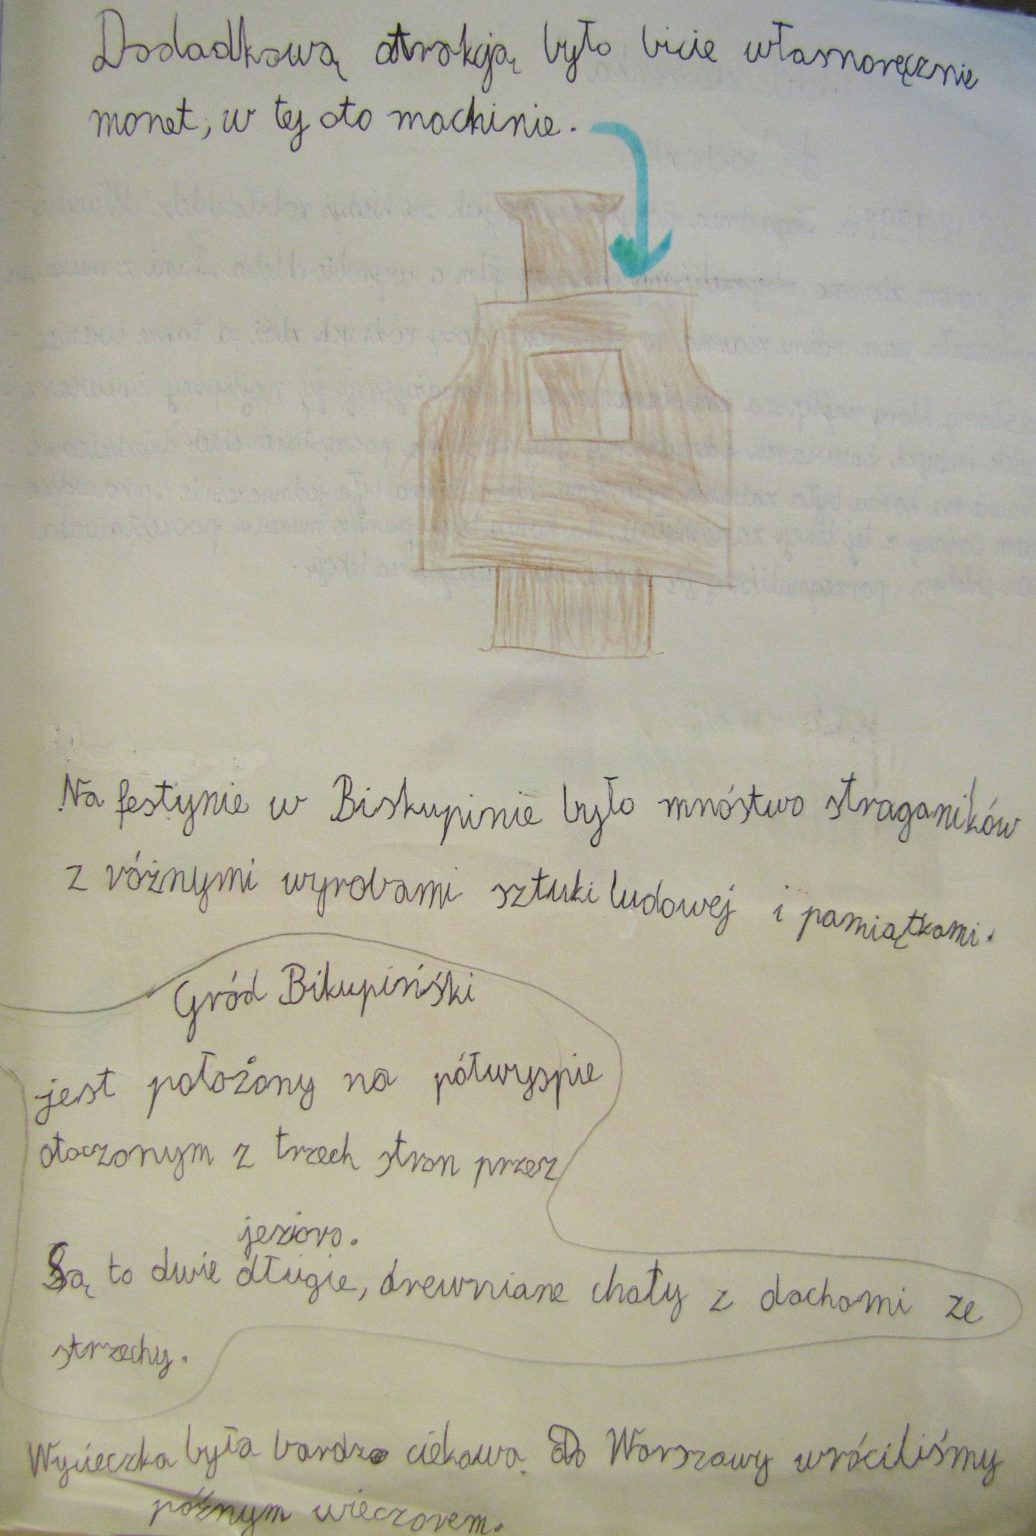 Dodadkową atrakcją było bicie własnoręcznie
monet, w tej oto machinie.
Na festynie w Biskupinie było mnóstwo straganików
z różnymi wyrobami sztuki ludowej i pamiątkami.
Gród Bikupińśki
jest położony na półwyspie
otoczonym z trzech stron przez
jezioro.
Są to dwie długie, drewniane chaty z dachami ze
strzechy.
Wycieczka była bardzo ciekawa. Do Warszawy wróciliśmy
póżnym wieczorem.